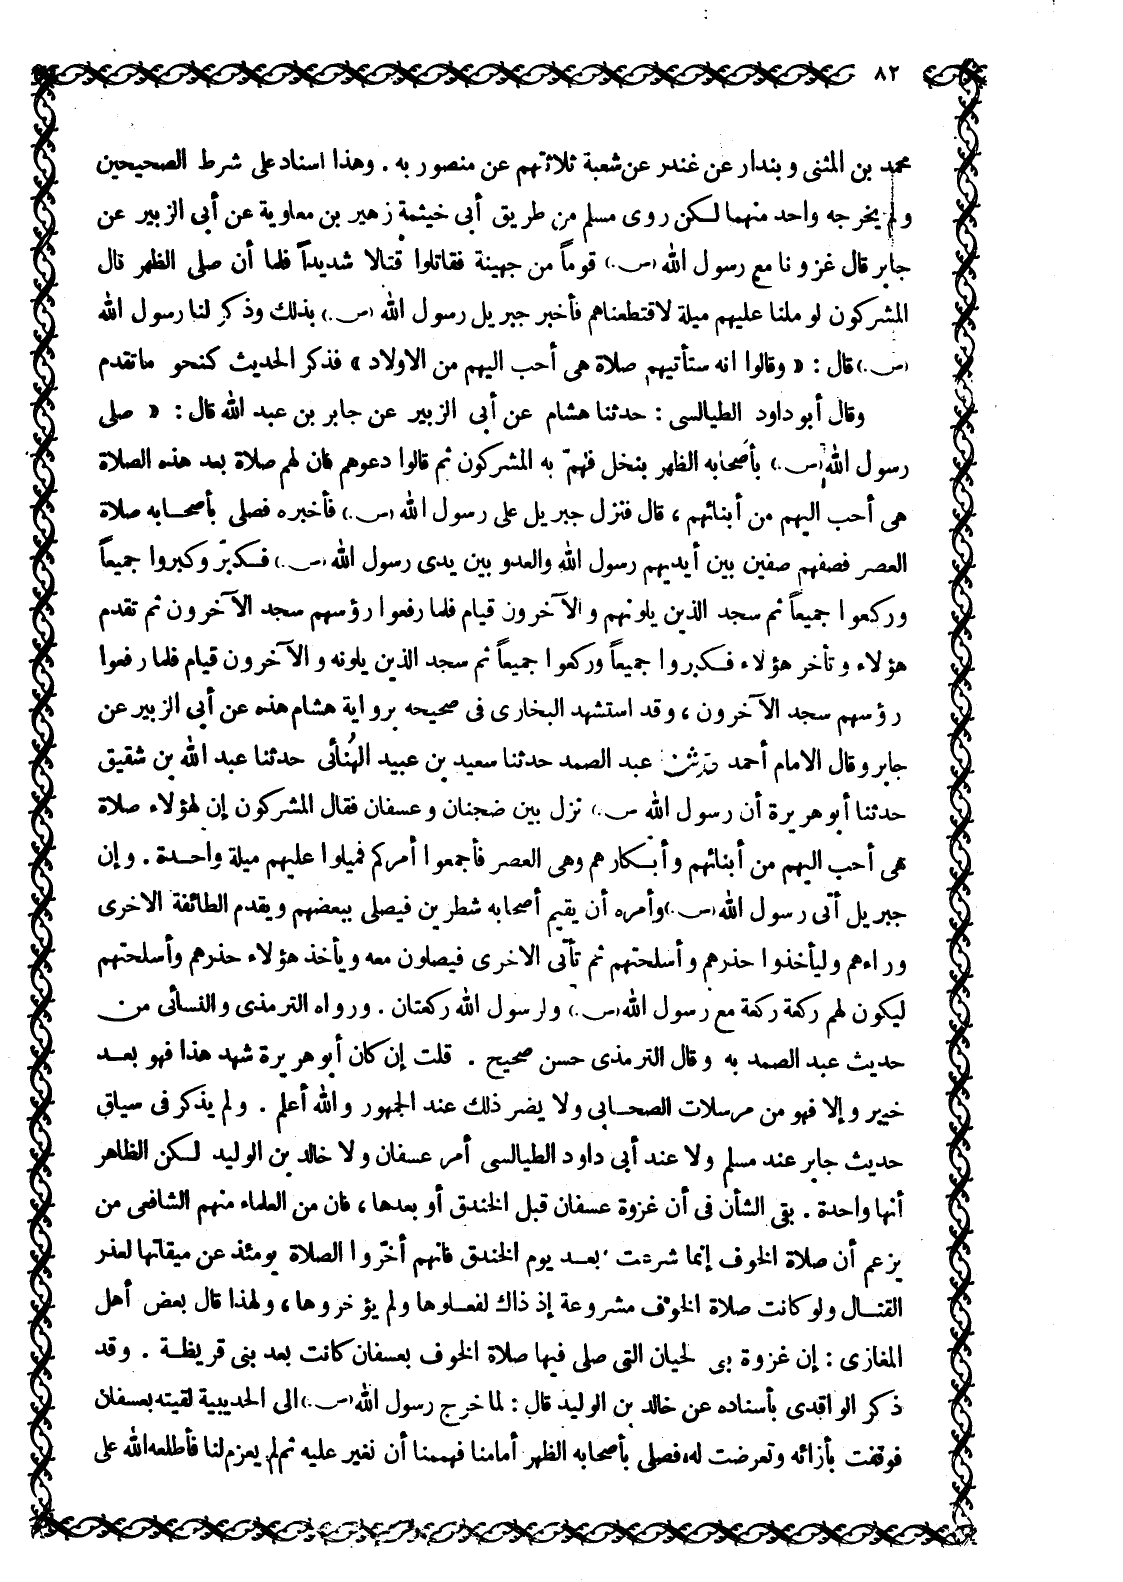 ٨٢
محمد بن المثنى وبندار عن غندر عن شعبة ثلاثتهم عن منصور به . وهذا اسناد على شرط الصحيحين
ولم يخرجه واحد منهما لكن روى مسلم من طريق أبى خيثمة زهير بن معاوية عن أبى الزبير عن
جابر قال غزونا مع رسول الله (س.) قوماً من جهينة فقاتلوا قتالا شديداً فلما أن صلى الظهر قال
المشركون لو ملنا عليهم ميلة لاقتطعناهم فأخبر جبريل رسول الله (س.) بذلك وذكر لنا رسول الله
(س.) قال : « وقالوا انه ستأتيهم صلاة هى أحب اليهم من الاولاد » فذكر الحديث كنحو ماتقدم
وقال أبو داود الطيالسى : حدثنا هشام عن أبى الزبير عن جابر بن عبد الله قال : « صلى
رسول الله (س.) بأصحابه الظهر بنخل فهمّ به المشركون ثم قالوا دعوهم فان لهم صلاة بعد هذه الصلاة
هى أحب اليهم من أبنائهم ، قال فنزل جبريل على رسول الله (س.) فأخبره فصلى بأصحابه صلاة
العصر فصفهم صفين بين أيديهم رسول الله والعدو بين يدى رسول الله (س.) فكبّر وكبروا جميعاً
وركعوا جميعاً ثم سجد الذين يلونهم والآخرون قيام فلما رفعوا رؤسهم سجد الآخرون ثم تقدم
هؤلاء وتأخر هؤلاء فكبروا جميعاً وركعوا جميعاً ثم سجد الذين يلونه والآخرون قيام فلما رفعوا
رؤسهم سجد الآخرون ، وقد استشهد البخارى فى صحيحه برواية هشام هذه عن أبى الزبير عن
جابر وقال الامام أحمد حدثنا عبد الصمد حدثنا سعيد بن عبيد الهُنائى حدثنا عبد الله بن شقيق
حدثنا أبو هريرة أن رسول الله س.) نزل بين ضجنان وعسفان فقال المشركون إن لهؤلاء صلاة
هى أحب اليهم من أبنائهم وأبكارهم وهى العصر فأجمعوا أمركم فميلوا عليهم ميلة واحدة . وإن
جبريل أتى رسول الله (س.) وأمره أن يقيم أصحابه شطرين فيصلى ببعضهم ويقدم الطائفة الاخرى
وراءهم وليأخذوا حذرهم وأسلحتهم ثم تأتى الاخرى فيصلون معه ويأخذ هؤلاء حذرهم وأسلحتهم
ليكون لهم ركعة ركعة مع رسول الله (س.) ولرسول الله ركعتان . ورواه الترمذى والنسائى من
حديث عبد الصمد به وقال الترمذى حسن صحيح . قلت إن كان أبو هريرة شهد هذا فهو بعد
خيبر وإلا فهو من مرسلات الصحابى ولا يضر ذلك عند الجمهور والله أعلم . ولم يذكر فى سياق
حديث جابر عند مسلم ولا عند أبى داود الطيالسى أمر عسفان ولا خالد بن الوليد لكن الظاهر
أنها واحدة . بقى الشأن فى أن غزوة عسفان قبل الخندق أو بعدها ، فان من العلماء منهم الشافعى من
يزعم أن صلاة الخوف إنما شرعت بعد يوم الخندق فانهم أخّروا الصلاة يومئذ عن ميقاتها لعذر
القتال ولو كانت صلاة الخوف مشروعة إذ ذاك لفعلوها ولم يؤخروها ، ولهذا قال بعض أهل
المغازى : إن غزوة بى لحيان التى صلى فيها صلاة الخوف بعسفان كانت بعد بنى قريظة . وقد
ذكر الواقدى بأسناده عن خالد بن الوليد قال : لما خرج رسول الله (س.) الى الحديبية لقيته بعسفان
فوقفت بأزائه وتعرضت له، فصلى بأصحابه الظهر أمامنا فهممنا أن نغير عليه ثم لم يعزم لنا فأطلعه الله على